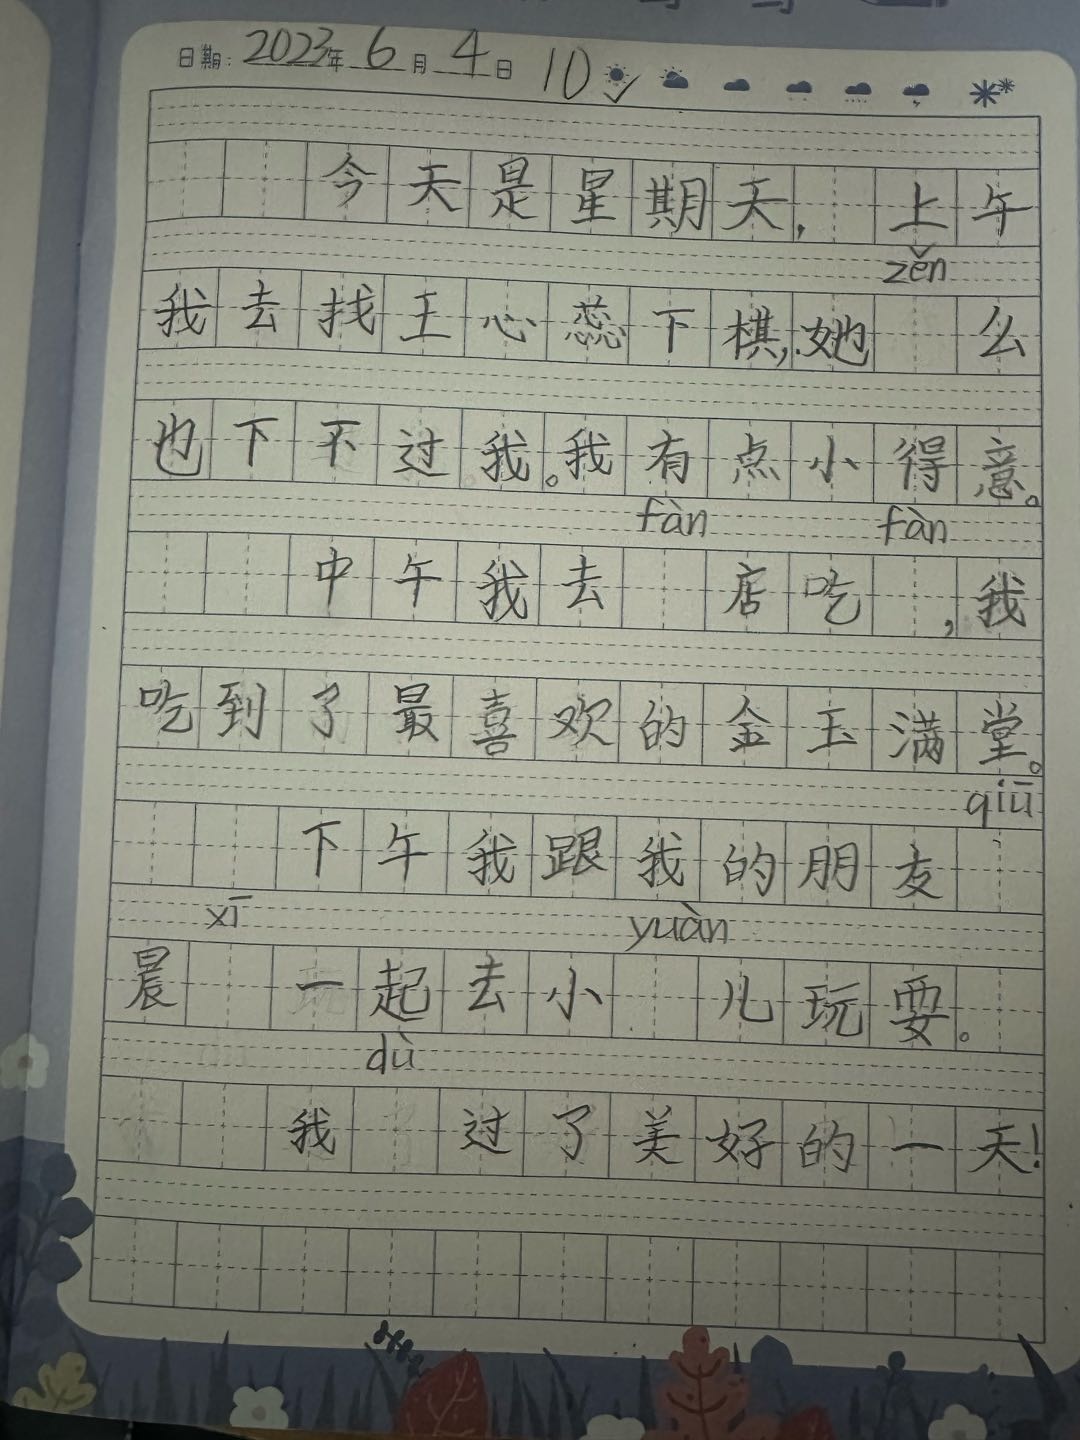 日期: 2023年 6月 4日 10
今天是星期天, 上午
zěn
我去找王心蕊下棋,她 么
也下不过我。我有点小得意。
fàn fàn
中午我去 店吃 ,我
吃到了最喜欢的金玉满堂。
qiū
下午我跟我的朋友
xī yuàn
晨 一起去小 儿玩耍。
dù
我 过了美好的一天!